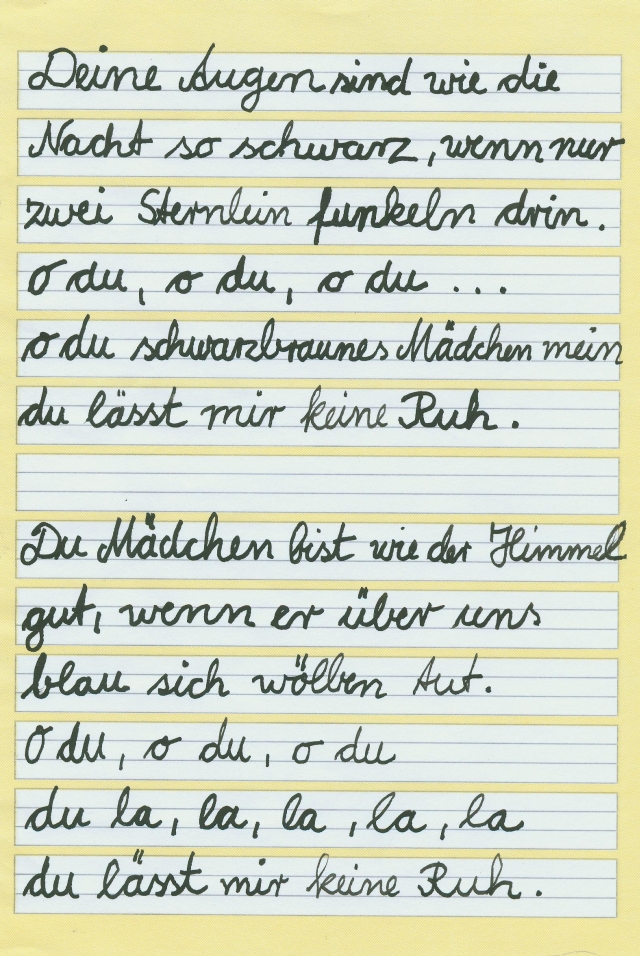 Deine Augen sind wie die
Nacht so schwarz, wenn nur
zwei Sternlein funkeln drin.
O du, o du, o du ...
o du schwarzbraunes Mädchen mein
du lässt mir keine Ruh.
Du Mädchen bist wie der Himmel
gut, wenn er über uns
blau sich wölben tut.
O du, o du, o du
du la, la, la, la, la
du lässt mir keine Ruh.